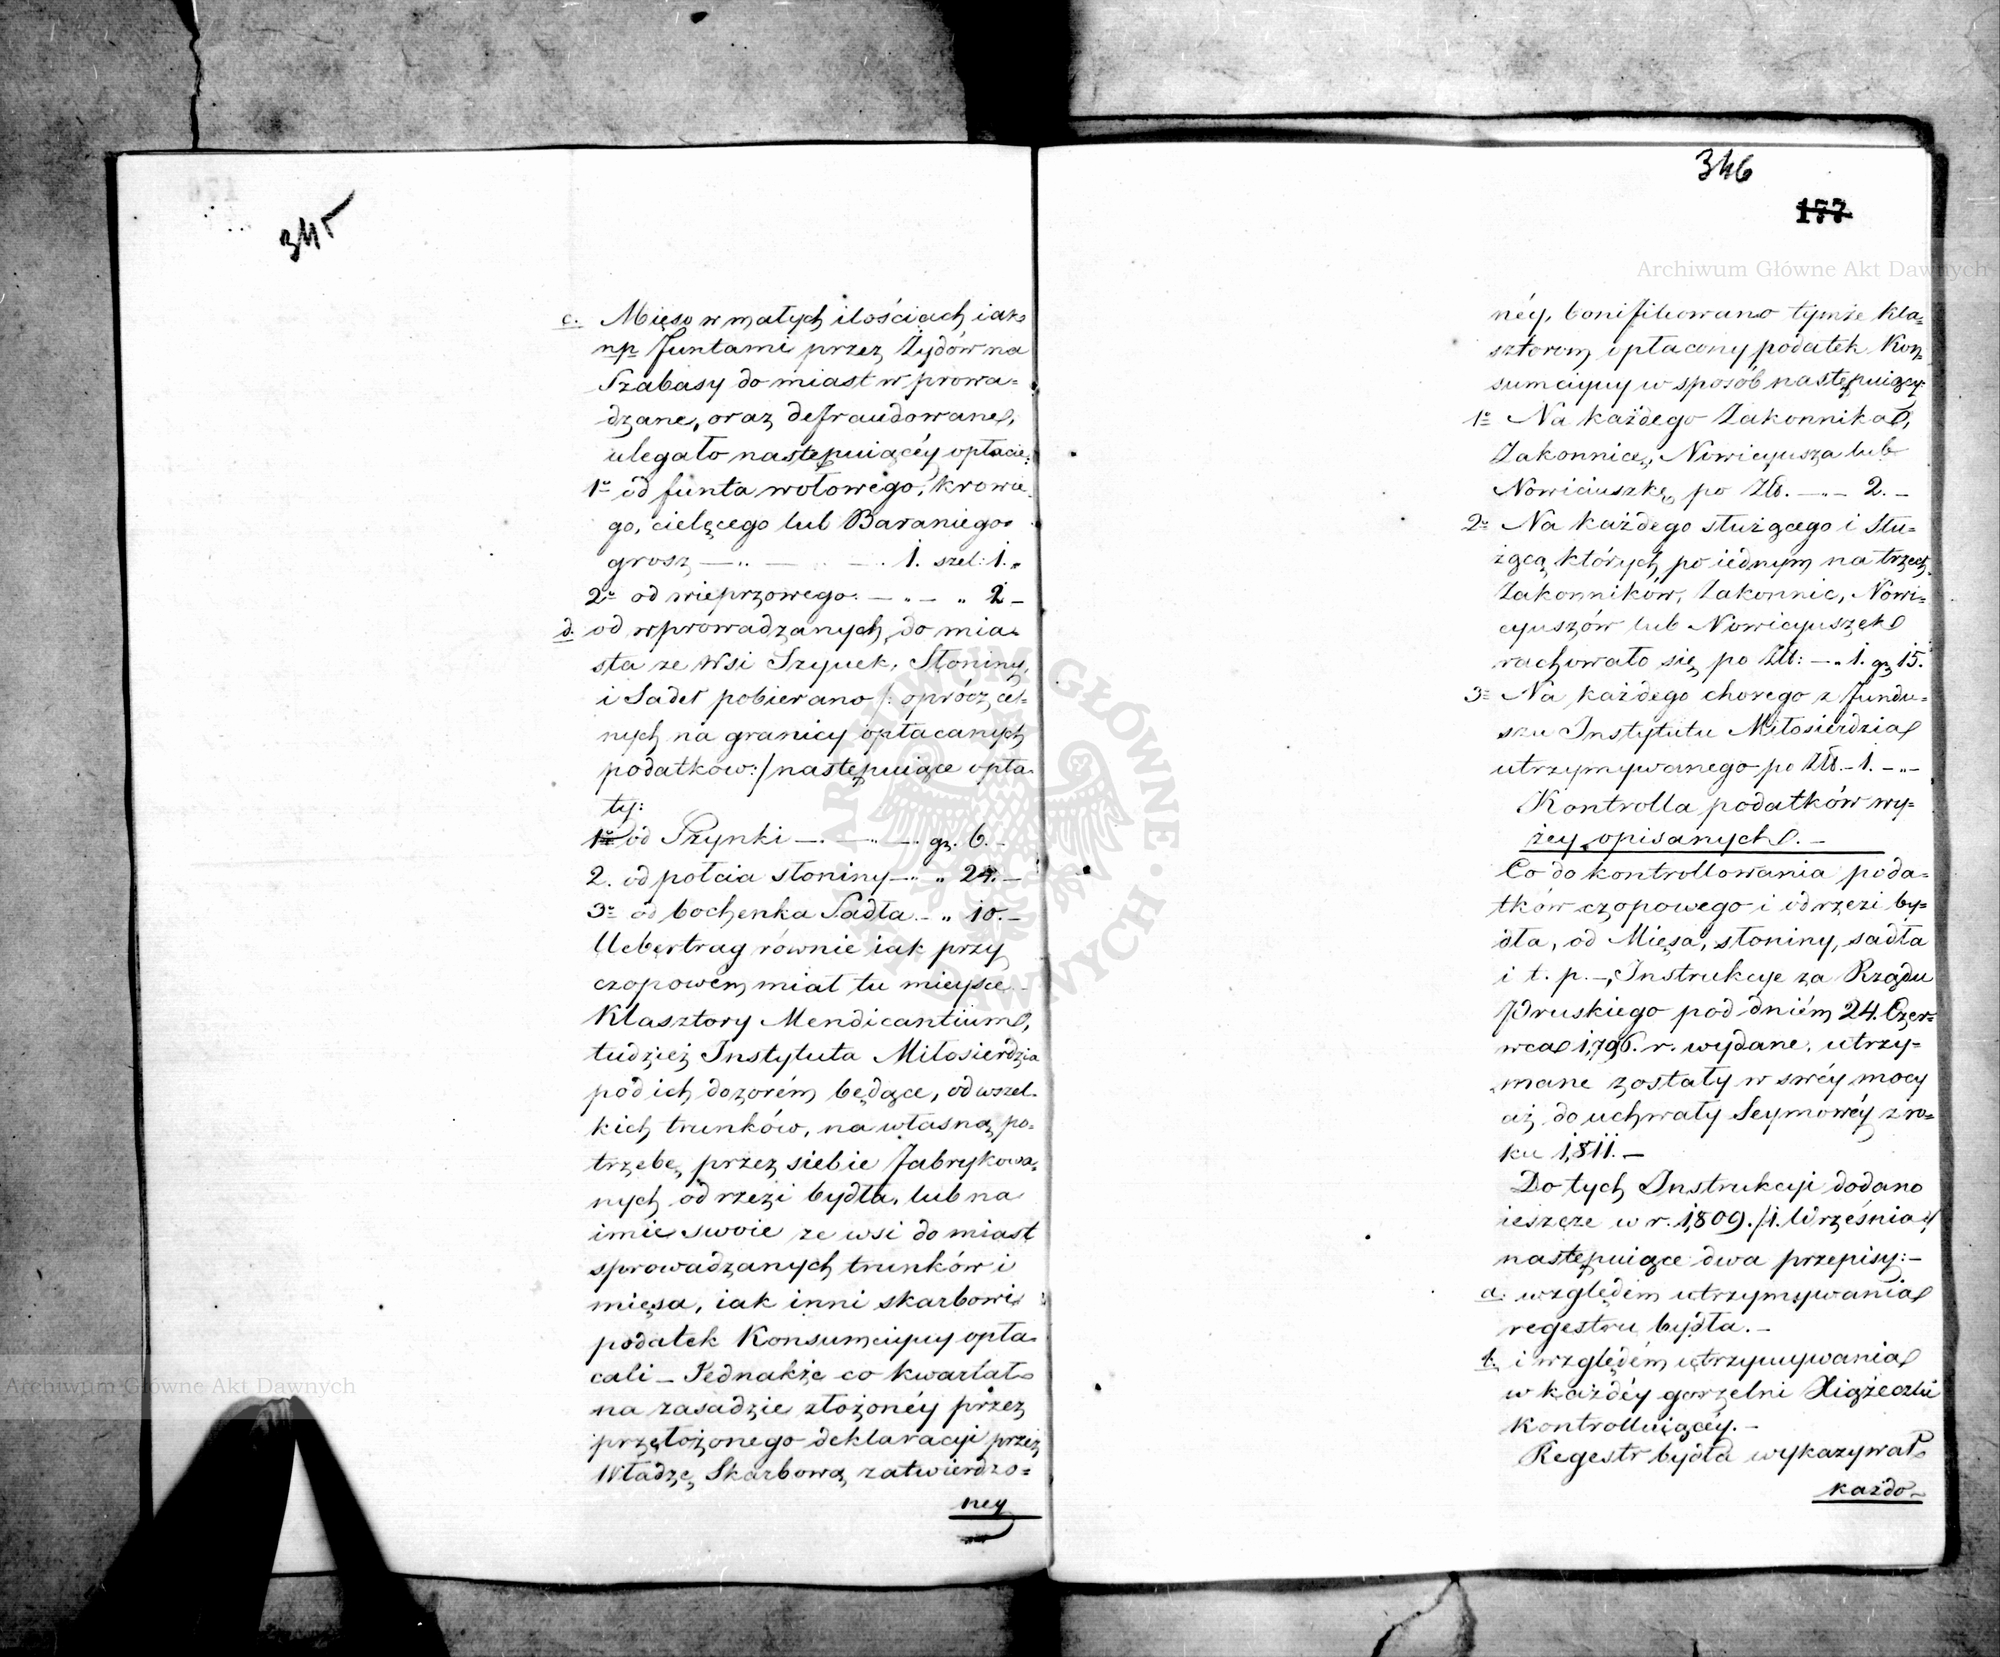 345
c. Mięso w małych ilościach iako
np funtami przez Żydów na
Szabasy do miast wprowa=
dzane, oraz defraudowane,
ulegało następuiącéy opłacie:
1o od funta wołowego, krowie
go, cielęcego lub Baraniego
grosz — .. — .. 1. szel: 1. „
2o od wieprzowego. — .. — „ 2 —
d. od wprowadzanych do mia=
sta ze Wsi Szynek, Słoniny,
i Sadeł pobierano /: oprócz cel=
nych na granicy opłacanych
podatków:/ następuiące opła=
ty:
1o od Szynki —.—..—. gr. 6. —
2. od połcia słoniny —.. „ 24. —
3o od bochenka Sadła. — „ 10. —
Uebertrag równie iak przy
czopowém miał tu mieysce. —
Klasztory Mendicantium,
tudzież Instytuta Miłosierdzia
pod ich dozorém będące, od wszel=
kich trunków, na własną po=
trzebę przez siebie fabrykowa=
nych od rzezi bydła, lub na
imie swoie ze wsi do miast
sprowadzanych trunków i
mięsa, iak inni skarbowi
podatek Konsumcyiny opła=
cali — Jednakże co kwartał
na zasadzie złożonéy przez
przełożonego deklaracyi przez
Władzę Skarbową zatwierdzo=
ney
346
177
néy, bonifikowano tymże Kla=
sztorom opłacony podatek Kon=
sumcyiny w sposób następuiący:
1o Na każdego Zakonnika,
Zakonnicę, Nowicyusza lub
Nowiciuszkę po Złt. — „ — 2. —
2o Na każdego służącego i Słu=
żącą których po iednym na trzech
Zakonników, Zakonnic, Nowi=
cyuszów lub Nowicyuszek
rachowało się po Złt: — „ 1. gr 15.
3o Na każdego chorego z fundu=
szu Instytutu Miłosierdzia
utrzymywanego po Złt. — 1. — „ —
Kontrolla podatków wy=
żey opisanych. —
Co do kontrollowania poda=
tków czopowego i od rzezi by=
dła, od Mięsa, słoniny, sadła
i t. p. —, Instrukcye za Rządu
Pruskiego pod dniém 24. Czer=
wca 1796. r. wydane, utrzy=
mane zostały w swéy mocy
aż do uchwały Seymowéy z ro=
ku 1811. —
Do tych Instrukcyi dodano
ieszcze w r. 1809. /1. Września/
następuiące dwa przepisy: —
a. względem utrzymywania
regestru bydła. —
b. i względém utrzymywania
w każdéy gorzelni Xiążeczki
kontrolluiącéy. —
Regestr bydła wykazywał
każdo=
Archiwum Główne Akt Dawnych
Archiwum Główne Akt Dawnych
ARCHIWUM GŁÓWNE AKT DAWNYCH